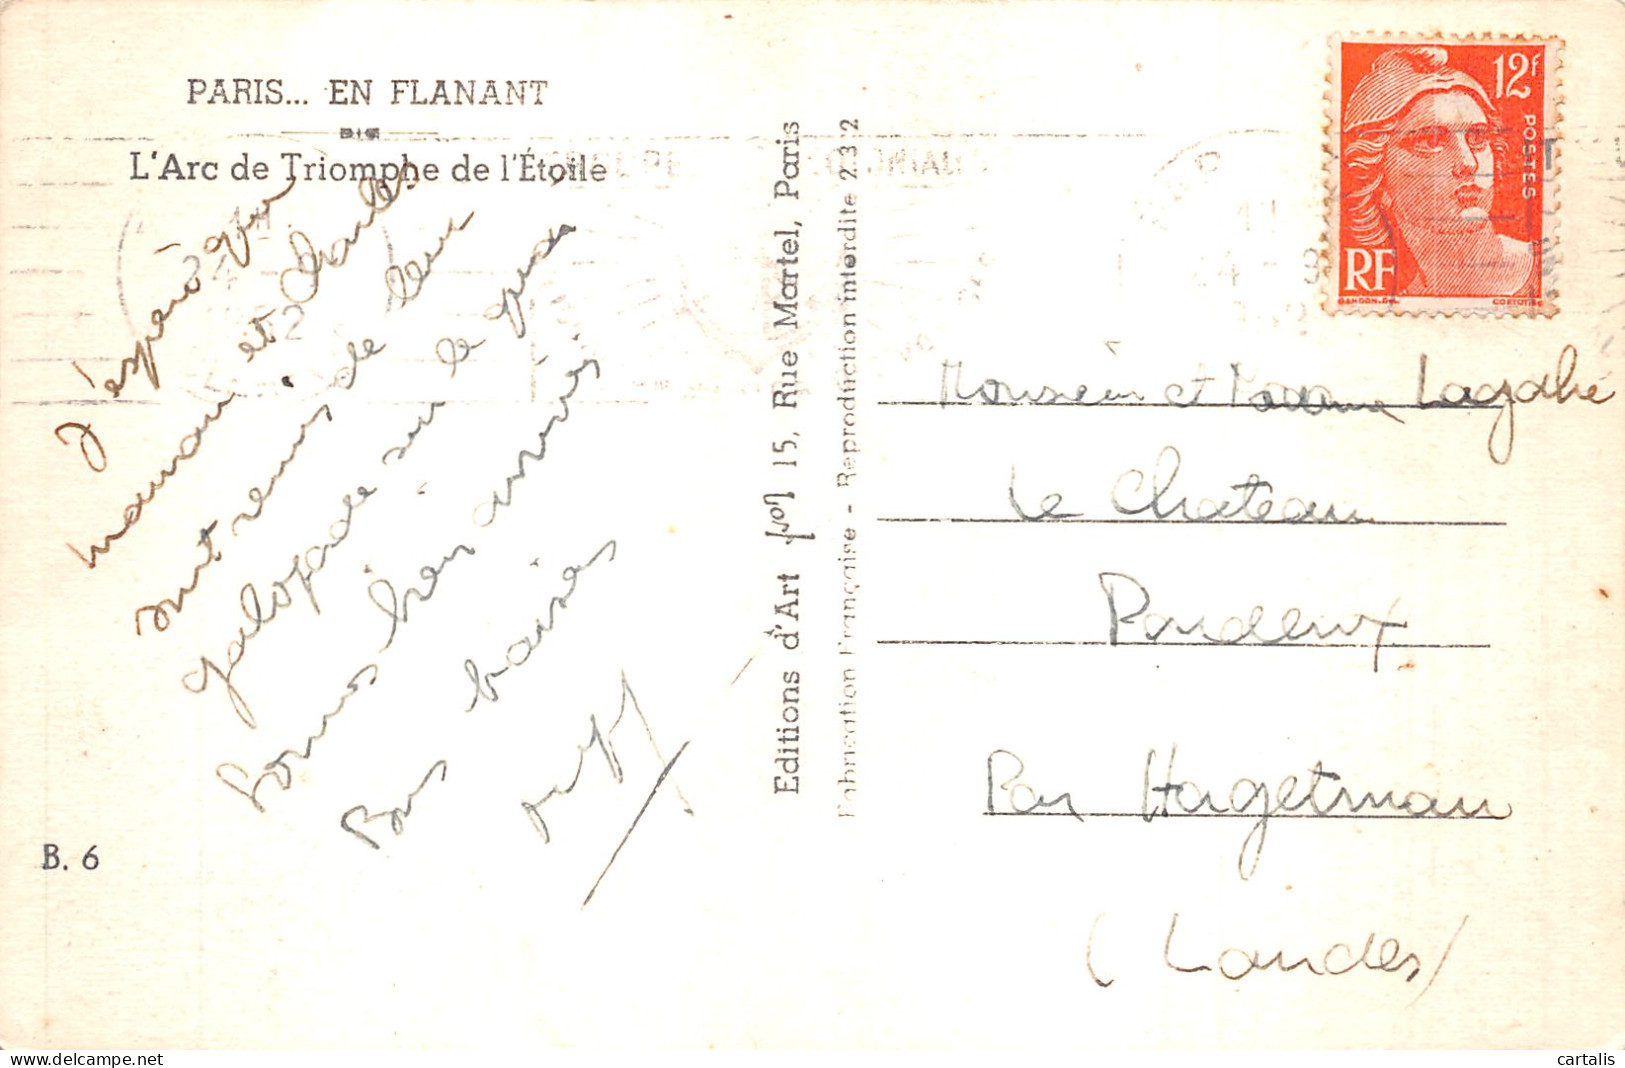 PARIS... EN FLANANT
L'Arc de Triomphe de l'Étoile
J'espère que
maman et Charles
sont remis de leur
galopade sur le quai
Sommes bien arrivés
Bons baisers
B. 6
Editions d'Art Yvon 15, Rue Martel, Paris
Fabrication Française - Reproduction interdite 2.3 2
12f
POSTES
RF
GANDON.DEL.
CORTOT.SC
Monsieur et Madame Lagahe
Le Chateau
Poudenx
Par Hagetmau
(Landes)
cartalis